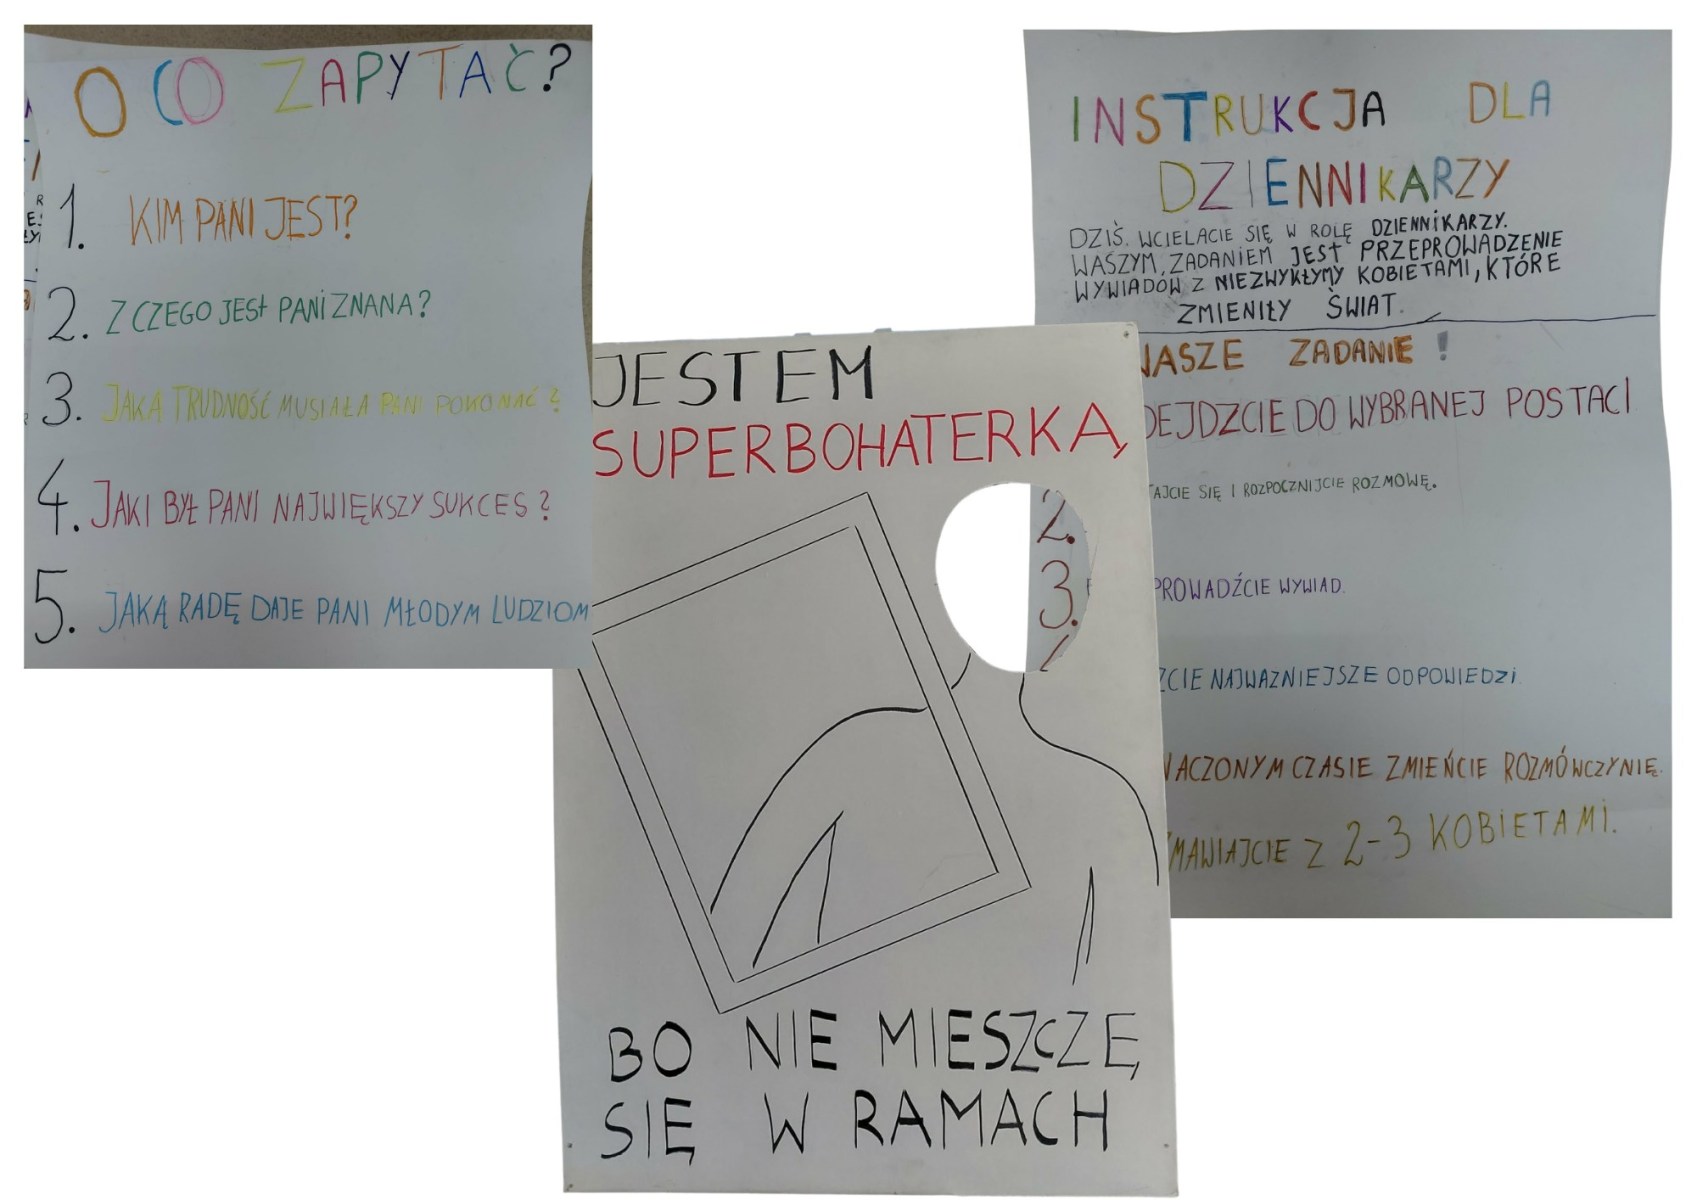 O CO ZAPYTAĆ?
1. KIM PANI JEST?
2. Z CZEGO JEST PANI ZNANA?
3. JAKĄ TRUDNOŚĆ MUSIAŁA PANI POKONAĆ?
4. JAKI BYŁ PANI NAJWIĘKSZY SUKCES?
5. JAKĄ RADĘ DAJE PANI MŁODYM LUDZIOM
JESTEM
SUPERBOHATERKĄ
2.
3.
BO NIE MIESZCZĘ
SIĘ W RAMACH
INSTRUKCJA DLA
DZIENNIKARZY
DZIŚ. WCIELACIE SIĘ W ROLĘ DZIENNIKARZY.
WASZYM, ZADANIEM JEST PRZEPROWADZENIE
WYWIADÓW Z NIEZWYKŁYMY KOBIETAMI, KTÓRE
ZMIENIŁY ŚWIAT.
WASZE ZADANIE!
DEJDZCIE DO WYBRANEJ POSTACI
TAJCIE SIĘ I ROZPOCZNIJCIE ROZMOWĘ.
PROWADŹCIE WYWIAD.
ZCIE NAJWAZNIEJSZE ODPOWIEDZI.
NACZONYM CZASIE ZMIEŃCIE ROZMÓWCZYNIĘ.
MAWIAJCIE Z 2-3 KOBIETAMI.